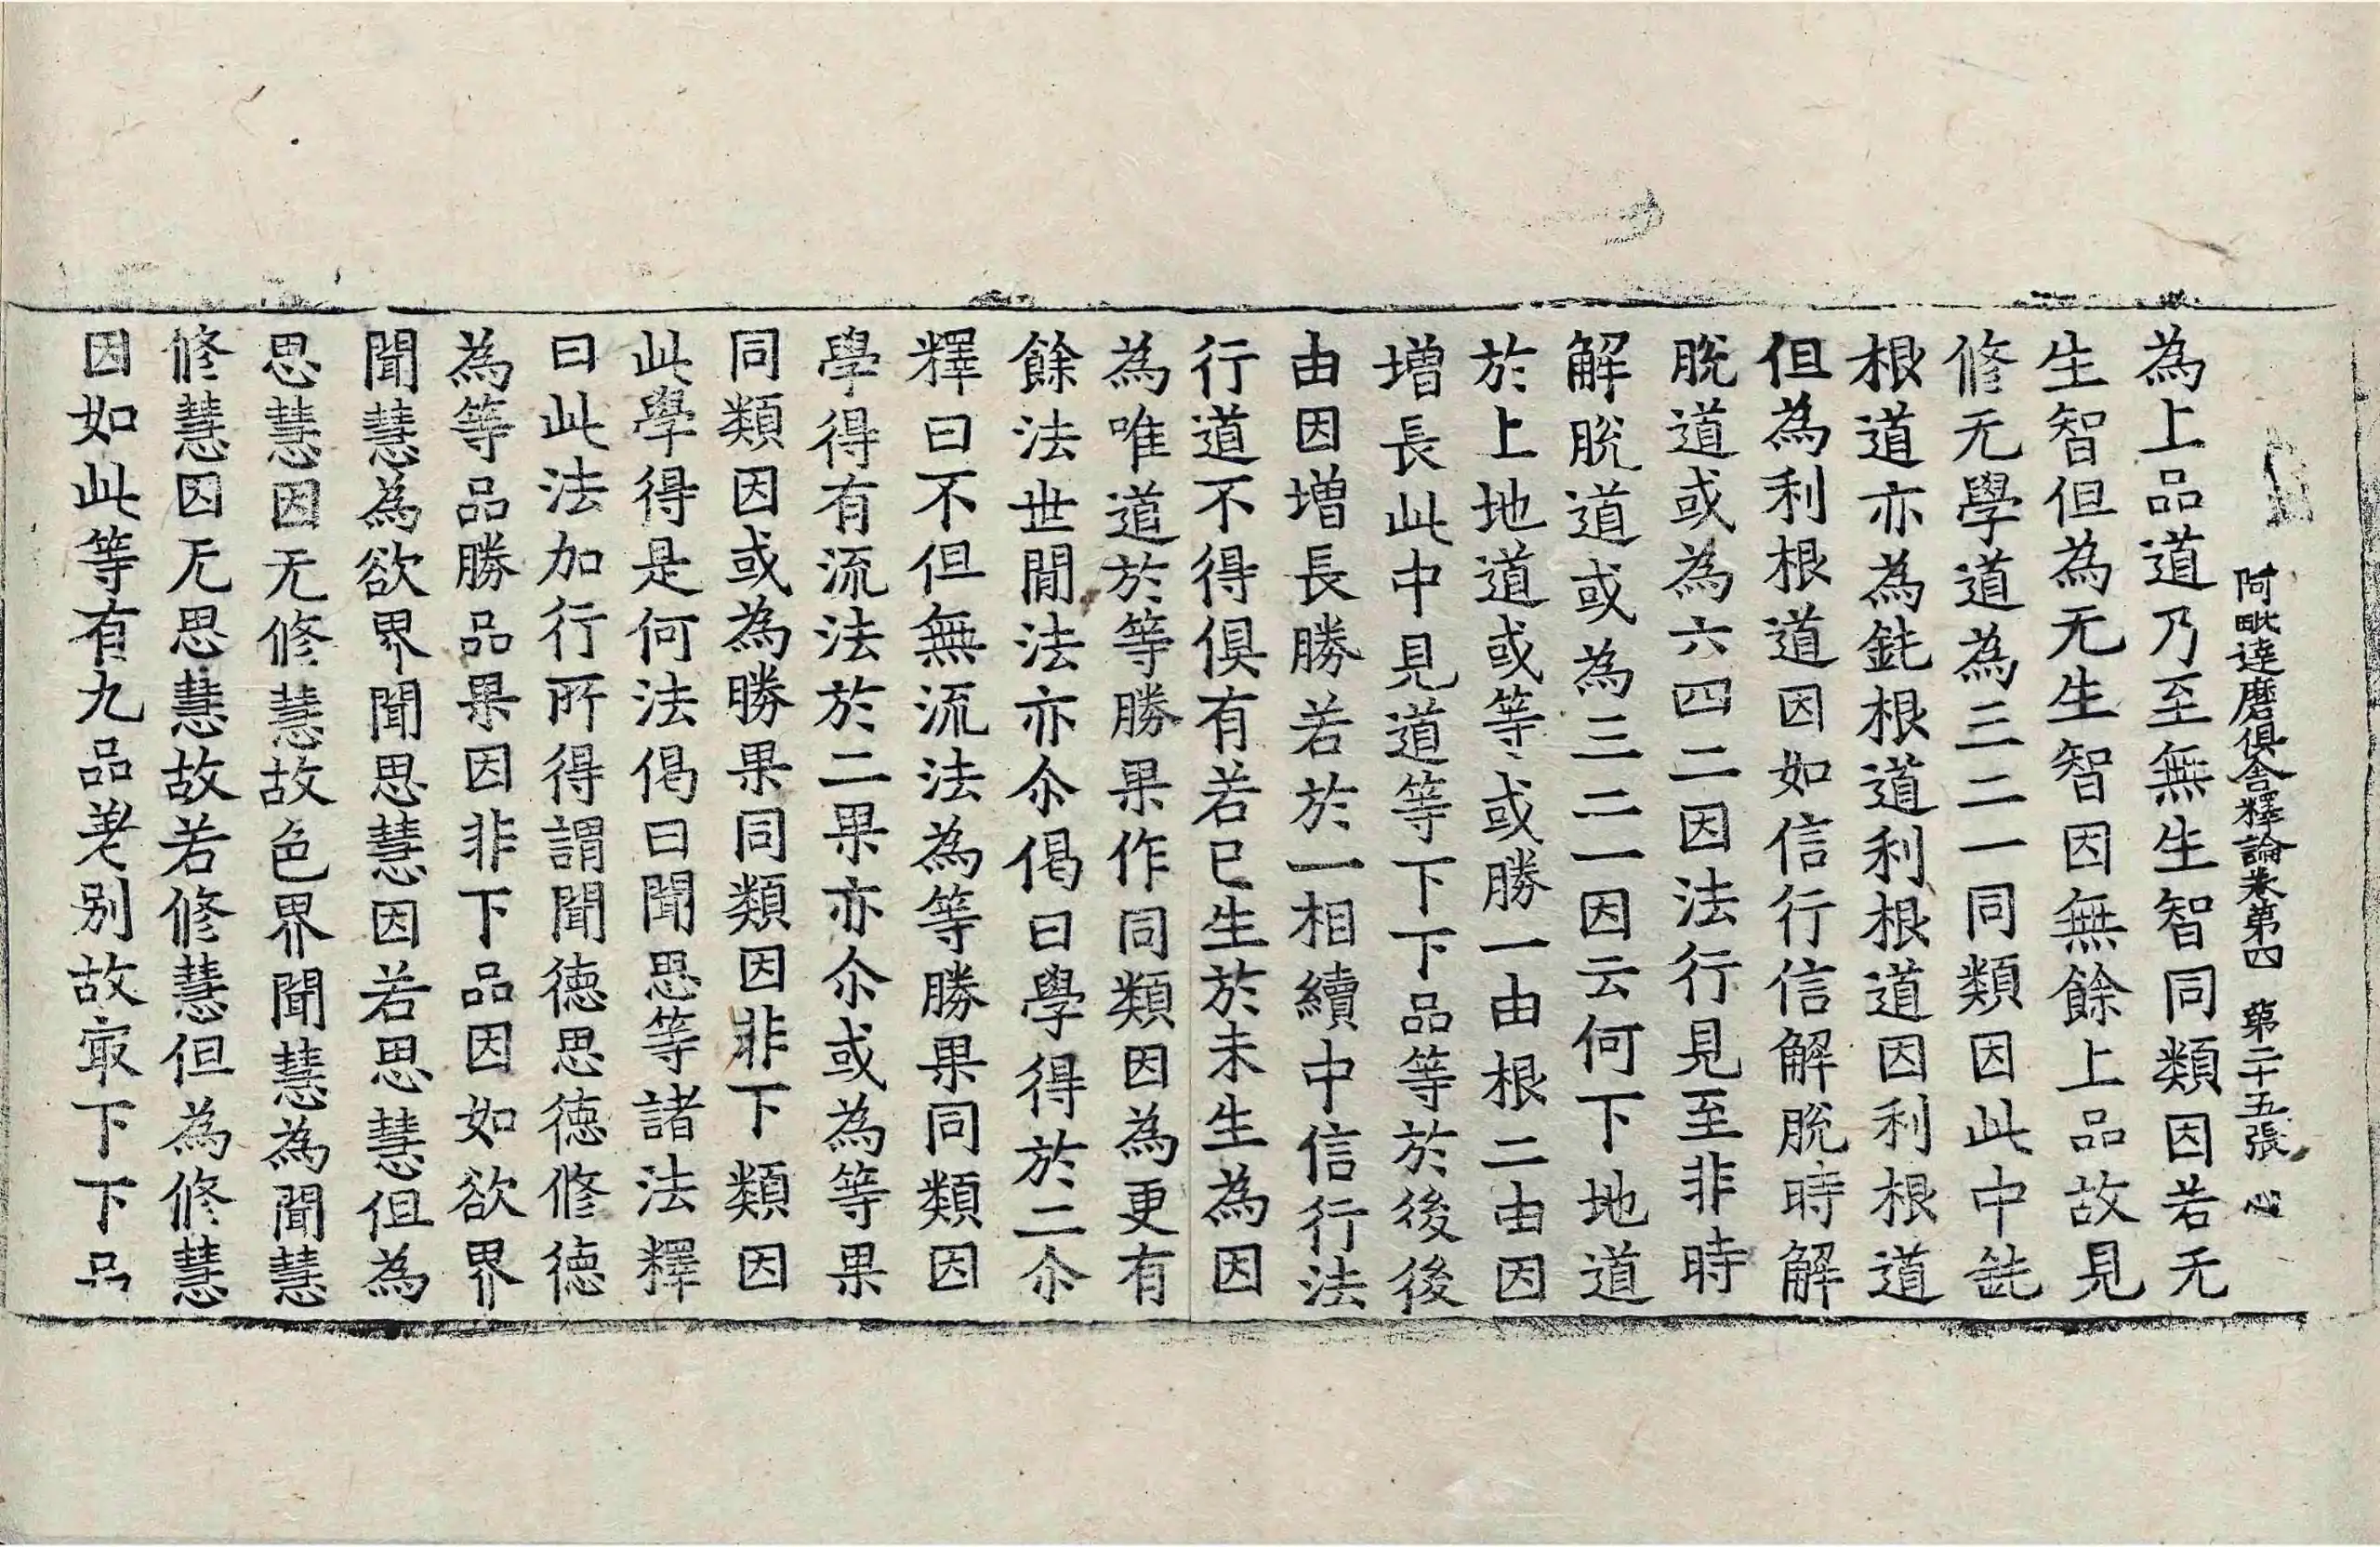 阿毗達磨俱舍釋論卷第四 第二十五張 心
為上品道乃至無生智同類因若无
生智但為无生智因無餘上品故見
修无學道為三二一同類因此中鈍
根道亦為鈍根道利根道因利根道
但為利根道因如信行信解脫時解
脫道或為六四二因法行見至非時
解脫道或為三二一因云何下地道
於上地道或等或勝一由根二由因
增長此中見道等下下品等於後後
由因增長勝若於一相續中信行法
行道不得俱有若已生於未生為因
為唯道於等勝果作同類因為更有
餘法世間法亦尒偈曰學得於二尒
釋曰不但無流法為等勝果同類因
學得有流法於二果亦尒或為等果
同類因或為勝果同類因非下類因
此學得是何法偈曰聞思等諸法釋
曰此法加行所得謂聞德思德修德
為等品勝品果因非下品因如欲界
聞慧為欲界聞思慧因若思慧但為
思慧因无修慧故色界聞慧為聞慧
修慧因无思慧故若修慧但為修慧
因如此等有九品差別故㝡下下品